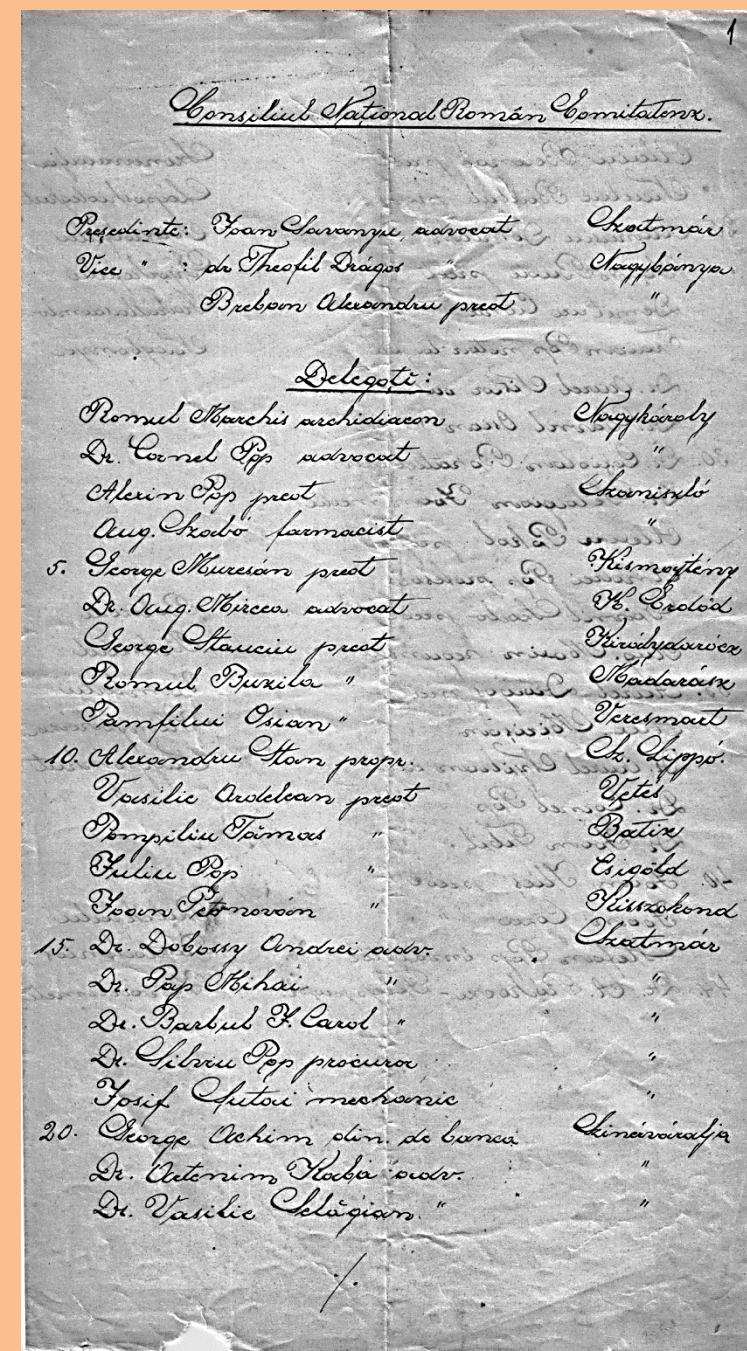 1
Consiliul Național Román Comitatenz.
Președinte: Ioan Savanyu, advocat Szatmár
Vice " : dr Theofil Drágos " Nagybánya
Breban Alexandru preot "
Delegați:
Romul Marchis archidiacon Nagykároly
Dr. Cornel Pop advocat "
Alexin Pop preot Szaniszló
Aug. Szabó farmacist "
5. George Muresán preot Kismajtény
Dr. Aug. Mircea advocat K. Erdőd
George Stauciu preot Királydarócz
Romul Buzila " Madarász
Pamfiliu Osian " Veresmart
10. Alexandru Stan propr. Sz. Lippó.
Vasilie Ardelean preot Vetés
Pompiliu Tămas " Batiz
Iuliu Pop " Csigöld
Ioan Petrován " Kisszokond
15. Dr. Dobossy Andrei adv. Szatmár
Dr. Pap Mihai " "
Dr. Barbul F. Carol " "
Dr. Silviu Pop procuror "
Iosif Sutai mechanic "
20. George Achim din. de banca Szinéváralja
Dr. Artenim Kaba adv. "
Dr. Vasilie Selăgian " "
./.